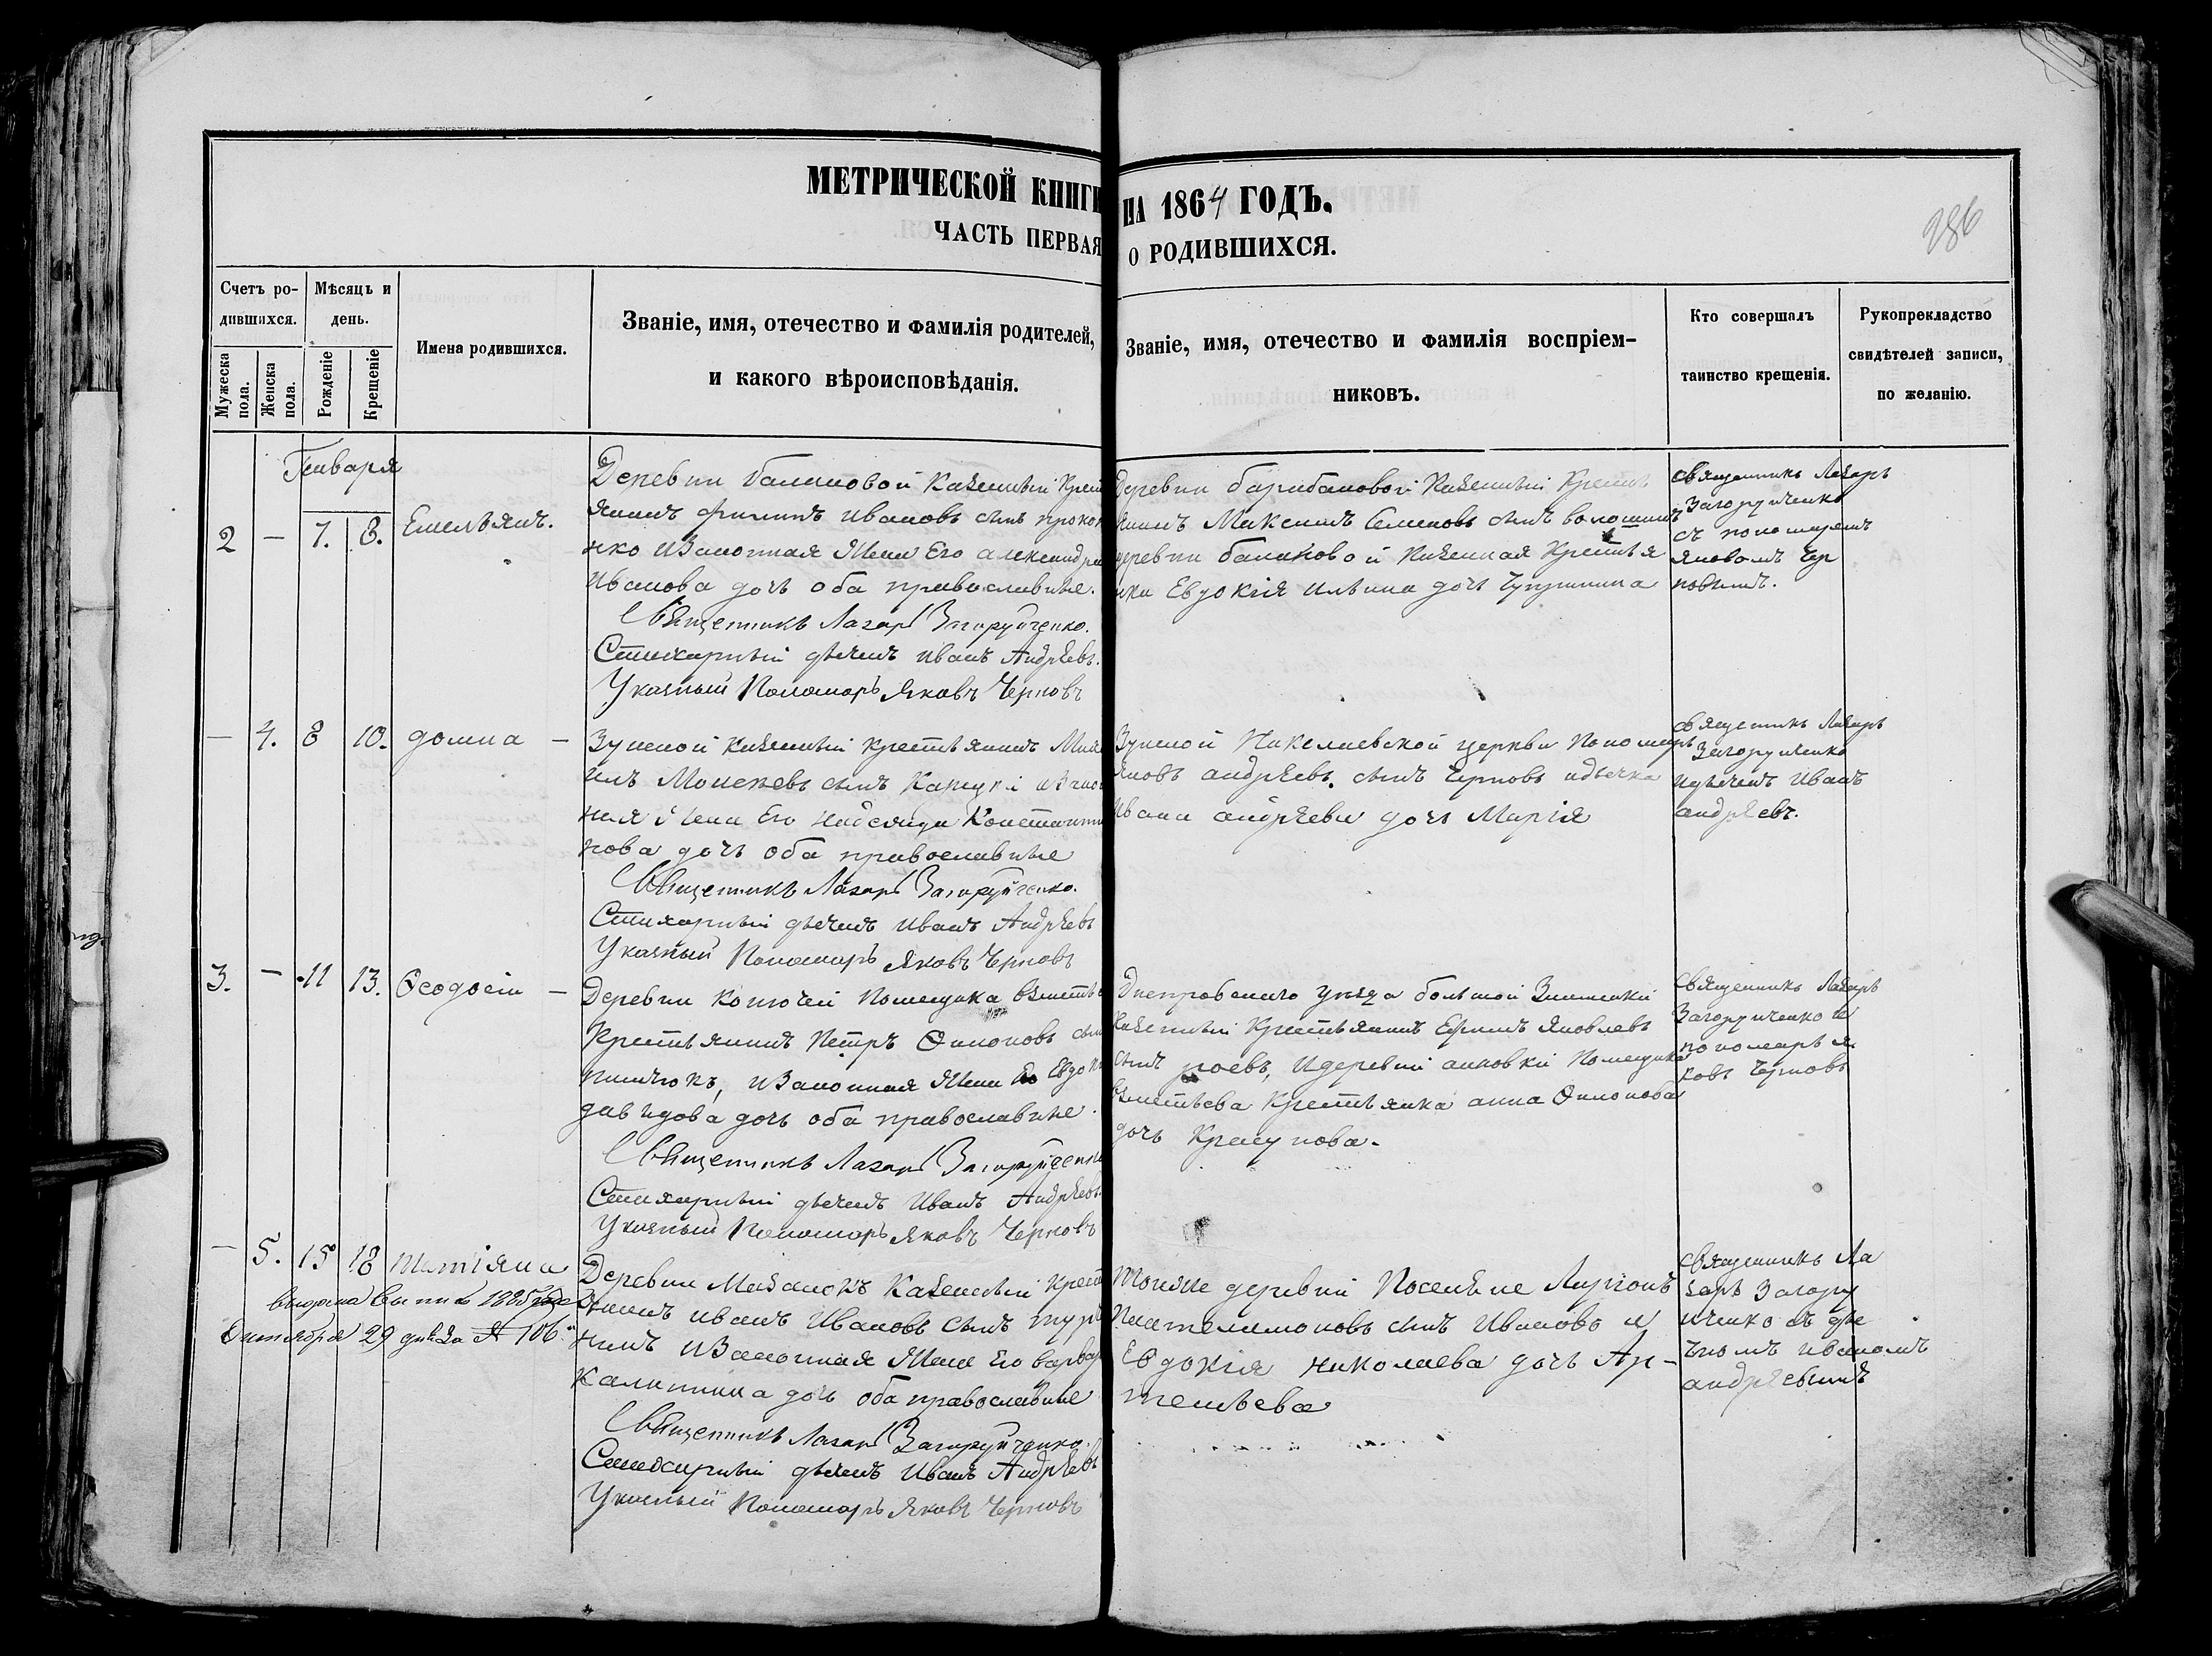 МЕТРИЧЕСКОЙ КНИГИ НА 1864 ГОДЪ.
ЧАСТЬ ПЕРВАЯ О РОДИВШИХСЯ.
286
Счетъ родившихся.
Мужеска пола.
Женска пола.
Мѣсяцъ и день.
Рожденіе
Крещеніе
Имена родившихся.
Званіе, имя, отечество и фамилія родителей,
и какого вѣроисповѣданія.
Званіе, имя, отечество и фамилія воспріем-
никовъ.
Кто совершалъ
таинство крещенія.
Рукоприкладство
свидѣтелей записи,
по желанію.
Генваря
2 — 7. 8. Емельянъ.
Деревни балиновой Казенный Крест
янинъ Филипъ Ивановъ сынъ проко
нко Изаконная Жена Его александра
Иванова дочь оба православные.
Священникъ Лазарь Загоруйченко.
Стихарный дьячекъ Иванъ Андрѣевъ.
Указный Пономарь Яковъ Черновъ
Деревни барабановой Казенный Кресть
янинъ Максимъ Семеновъ сынъ волошинъ
деревни балиновой Казенная Крестья
нка Евдокія Ильина дочь
священникъ Лазарь
Загоруйченко
съ пономаремъ
Яковомъ Чер
новымъ.
— 4. 8 10. домна —
Зуйской Казенный крестьянинъ Миха
илъ Моисеевъ сынъ Изакон
ная Жена Его надежда Константи
нова дочь оба православные
Священникъ Лазарь Загоруйченко.
Стихарный дьячекъ Иванъ Андрѣевъ
Указный Пономарь Яковъ Черновъ
Зуйской Николаевской церкви Пономарь
Яковъ андрѣевъ сынъ Черновъ идьячка
Ивана андрѣева дочь Марія
священникъ Лазарь
Загоруйченко
идьячекъ Иванъ
андрѣевъ.
3. — 11 13. Ѳеодосій —
Деревни Помещика
Крестьянинъ Петръ сынъ
Изаконная Жена Его Евдокія
давидова дочь оба православные.
Священникъ Лазарь Загоруйченко
Стихарный дьячекъ Иванъ Андрѣевъ.
Указный Пономарь Яковъ Черновъ
Днепровскаго уѣзда большой Знаменки
Казенный Крестьянинъ Ефимъ Яковлевъ
сынъ роевъ, Идеревни анновки Помещика
Крестьянка анна
дочь
священникъ Лазарь
Загоруйченко и
пономарь Я
ковъ Черновъ
— 5. 15 18 Татіяна
выдана выпись 1885 года
Октября 29 дня за № 106.
Деревни Мазанокъ Казенный Крест
янинъ иванъ Ивановъ сынъ
нинъ Изаконная Жена Его варвар
Калинина дочь оба православные
Священникъ Лазарь Загоруйченко.
Стихарный дьячекъ Иванъ Андрѣевъ
Указный Пономарь Яковъ Черновъ
Тойже деревни Поселяне Ларіонъ
Пантелимоновъ сынъ Ивановъ и
Евдокія николаева дочь Ар-
темьева
священникъ Ла
зарь Загору
йченко съ дья
чкомъ иваномъ
андрѣевымъ